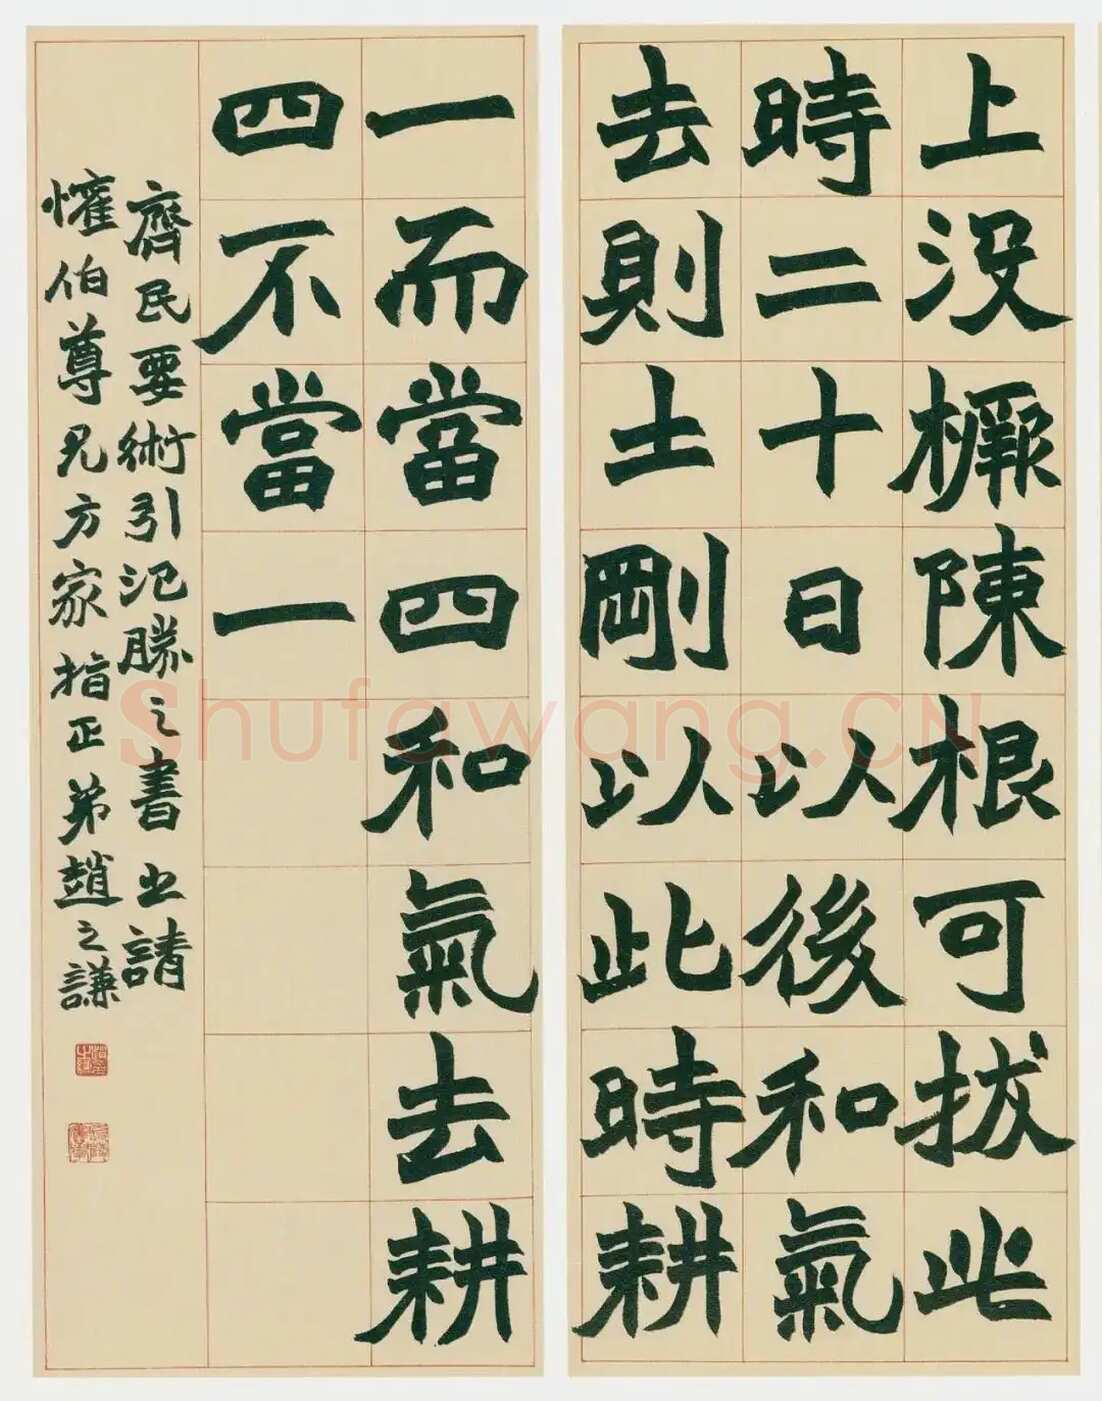 上没橛陳根可拔此
時二十日以後和氣
去則土剛以此時耕
一而當四和氣去耕
四不當一
齊民要術引氾勝之書 㞢請
懽伯尊兄方家指正弟趙之謙
Shufawang.CN